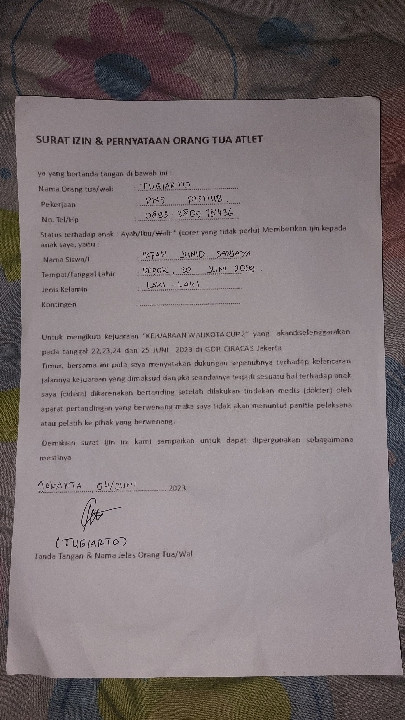 SURAT IZIN & PERNYATAAN ORANG TUA ATLET
ya yang bertanda tangan di bawah ini :
Nama Orang tua/wali : TUGIARTO
Pekerjaan :
No. Tel/Hp :
Status terhadap anak : Ayah/Ibu/Wali * (coret yang tidak perlu) Memberikan ijin kepada
anak saya, yaitu :
Nama Siswa/i :
Tempat/Tanggal Lahir :
Jenis Kelamin : LAKI LAKI
Kontingen :
Untuk mengikuti kejuaraan "KEJUARAAN WALIKOTA CUP 2" yang akandiselenggarakan
pada tanggal 22,23,24 dan 25 JUNI 2023 di GOR CIRACAS Jakarta
Timur, bersama ini pula saya menyatakan dukungan sepenuhnya terhadap kelancaran
jalannya kejuaraan yang dimaksud dan jika seandainya terjadi sesuatu hal terhadap anak
saya (cidera) dikarenakan bertanding setelah dilakukan tindakan medis (dokter) oleh
aparat pertandingan yang berwenang maka saya tidak akan menuntut panitia pelaksana
atau pelatih ke pihak yang berwenang.
Demikian surat ijin ini kami sampaikan untuk dapat dipergunakan sebagaimana
mestinya
JAKARTA 2023
(TUGIARTO)
Tanda Tangan & Nama Jelas Orang Tua/Wali